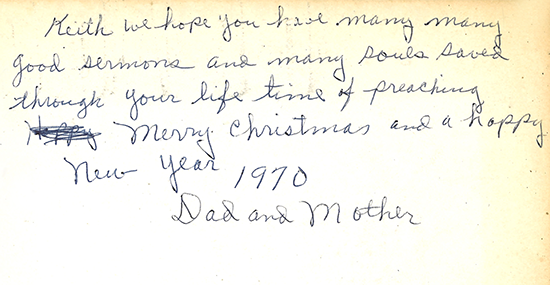 Keith we hope you have many many
good sermons and many souls saved
through your life time of preaching
Happy Merry Christmas and a happy
New Year 1970
Dad and Mother